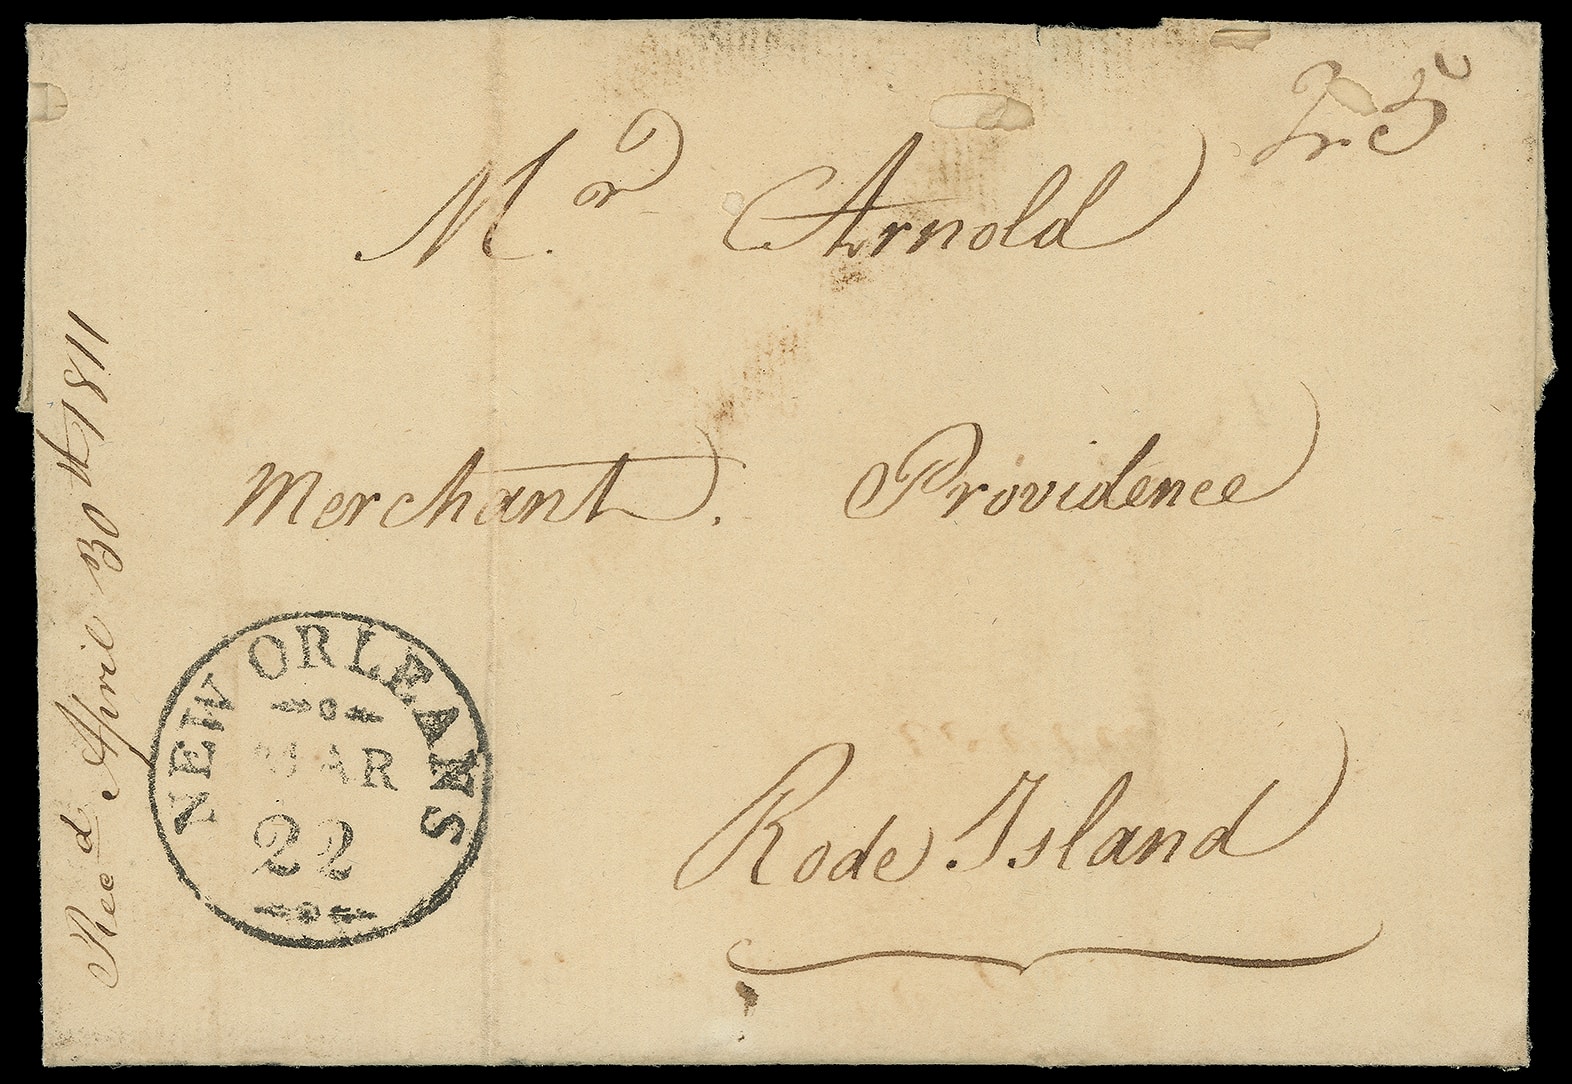 Mr. Arnold
Merchant. Providence
Rode Island
Recd Aprile 30th 1811
NEW ORLEANS
MAR
22